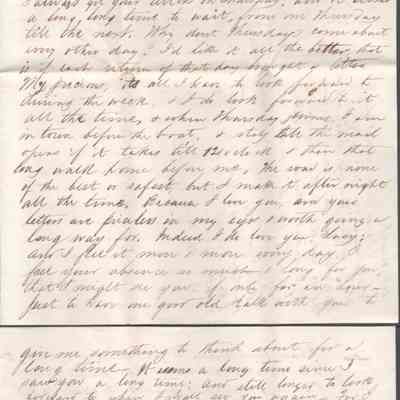 I always get your letter on Thursday, and it seems
a long, long time to wait, from one Thursday
till the next. Why dont Thursdays come about
every other day. I'd like it all the better, that
is if each return of that day brought a letter
My precious, its all I have to look forward to
during the week, & I do look forward to it
all the time, & when Thursday comes, I am
in town before the boat, & stay till the mail
opens if it takes till 12 o'clock & then that
long walk home before me. The road is none
of the best or safest, but I make it after night
all the time. Because I love you, and your
letters are priceless in my eyes & worth going a
long way for. Indeed I do love you
and I feel it more & more every day, I
feel your absence so much & long for you,
that I might see you if only for an hour-
just to have one good old talk with you to
give me something to think about for a
long time. It seems a long time since I
saw you, a long time: and still longer to look
forward to when I shall see you again